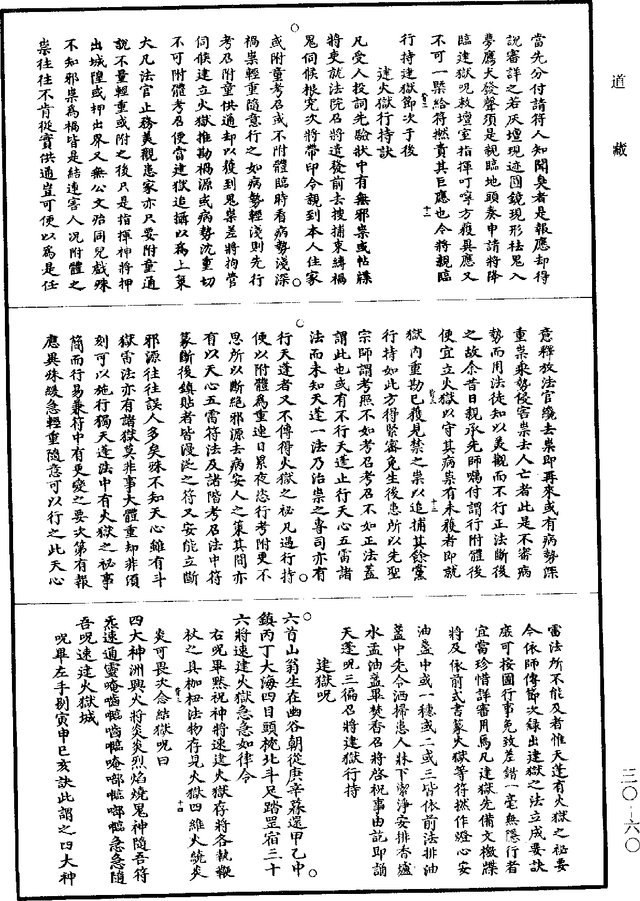 道藏
當先分付請符人知聞臭者是報應却得
說審詳之若灰壇現迹圓鏡現形祛鬼入
夢鷹犬發聲須是親臨地頭奏申請將降
臨建獄呪敕壇室指揮叮寧方獲具應又
不可一槩給符撚責其巨應也今將親臨
行持建獄節次于後
建火獄行持訣
凡受人投詞先驗狀中有無邪祟或帖牒
將吏就法院召將遣發前去搜捕束縛禍
鬼伺候根究次將帶印令親到本人住家
或附童考召或不附體臨時看病勢淺深
禍祟輕重隨意行之如病勢輕淺則先行
考召附童供通却以獲到鬼祟差將拘管
伺候建立火獄推勘禍源或病勢沈重切
不可附體考召便當建獄追攝以爲上策
大凡法官止務美觀患家亦只要附童通
說不量輕重或附之後只是指揮神將押
出城隍或押出界又無公文殆同兒戲殊
不知邪祟爲禍皆是結連害人况附體之
祟往往不肯從實供通豈可便以爲是任
意釋放法官纔去祟即再來或有病勢深
重祟乘勢侵害祟去人亡者此是不審病
勢而用法徒知以美觀而不行正法斷後
之故余昔日親承先師囑付謂行附體後
便宜立火獄以守其病祟有未獲者即就
獄內重勘已獲見禁之祟以追捕其餘黨
行持如此方得緊審免生後患所以先聖
宗師謂考照不如考召考召不如正法蓋
謂此也或有不行天蓬止行天心五雷諸
法而未知天蓬一法乃治祟之專司亦有
行天蓬者又不傳得火獄之祕凡遇行持
便以附體爲重連日累夜恣行考附更不
思所以斷絕邪源去病安人之策其間亦
有以天心五雷符法及諸階考召法中符
篆斷後鎮貼者皆漫泛之符又安能立斷
邪源往往誤人多矣殊不知天心雖有斗
獄雷法亦有諸獄莫非事大體重却非頃
刻可以施行獨天蓬法中有火獄之祕事
簡而行易兼符中有更變之要次第有報
應異殊緩急輕重隨意可以行之此天心
雷法所不能及者惟天蓬有火獄之祕要
今依師傳節次録出建獄之法立成要訣
庶可按圖行事免致差錯一毫無隱行者
宜當珍惜詳審用焉凡建獄先備文檄牒
將及依前式書篆火獄等符撚作燈心安
油盞中或一穗或二或三皆依前法排油
盞中先令洒掃患人牀下潔淨安排香爐
水盂油盞畢焚香召將啓祝事由訖即誦
天蓬呪三徧召將建獄行持
建獄呪
六首山翁生在幽谷朝從庚辛暮還甲乙中
鎮丙丁大海四目頭枕北斗足踏罡宿三十
六將速建火獄急急如律令
右呪畢黙祝神將速建火獄存將各執鞭
杖之具枷杻法物存見火獄四維火統炎
炎可畏次念結獄呪曰
四大神洲興火將炎炎烈焰燒鬼神隨吾符
炁速通靈唵㘕㘕唵㘕唵唧㘕唧㘕急急隨
吾呪速建火獄城
呪畢左手剔寅申巳亥訣此謂之四大神
三〇—六〇